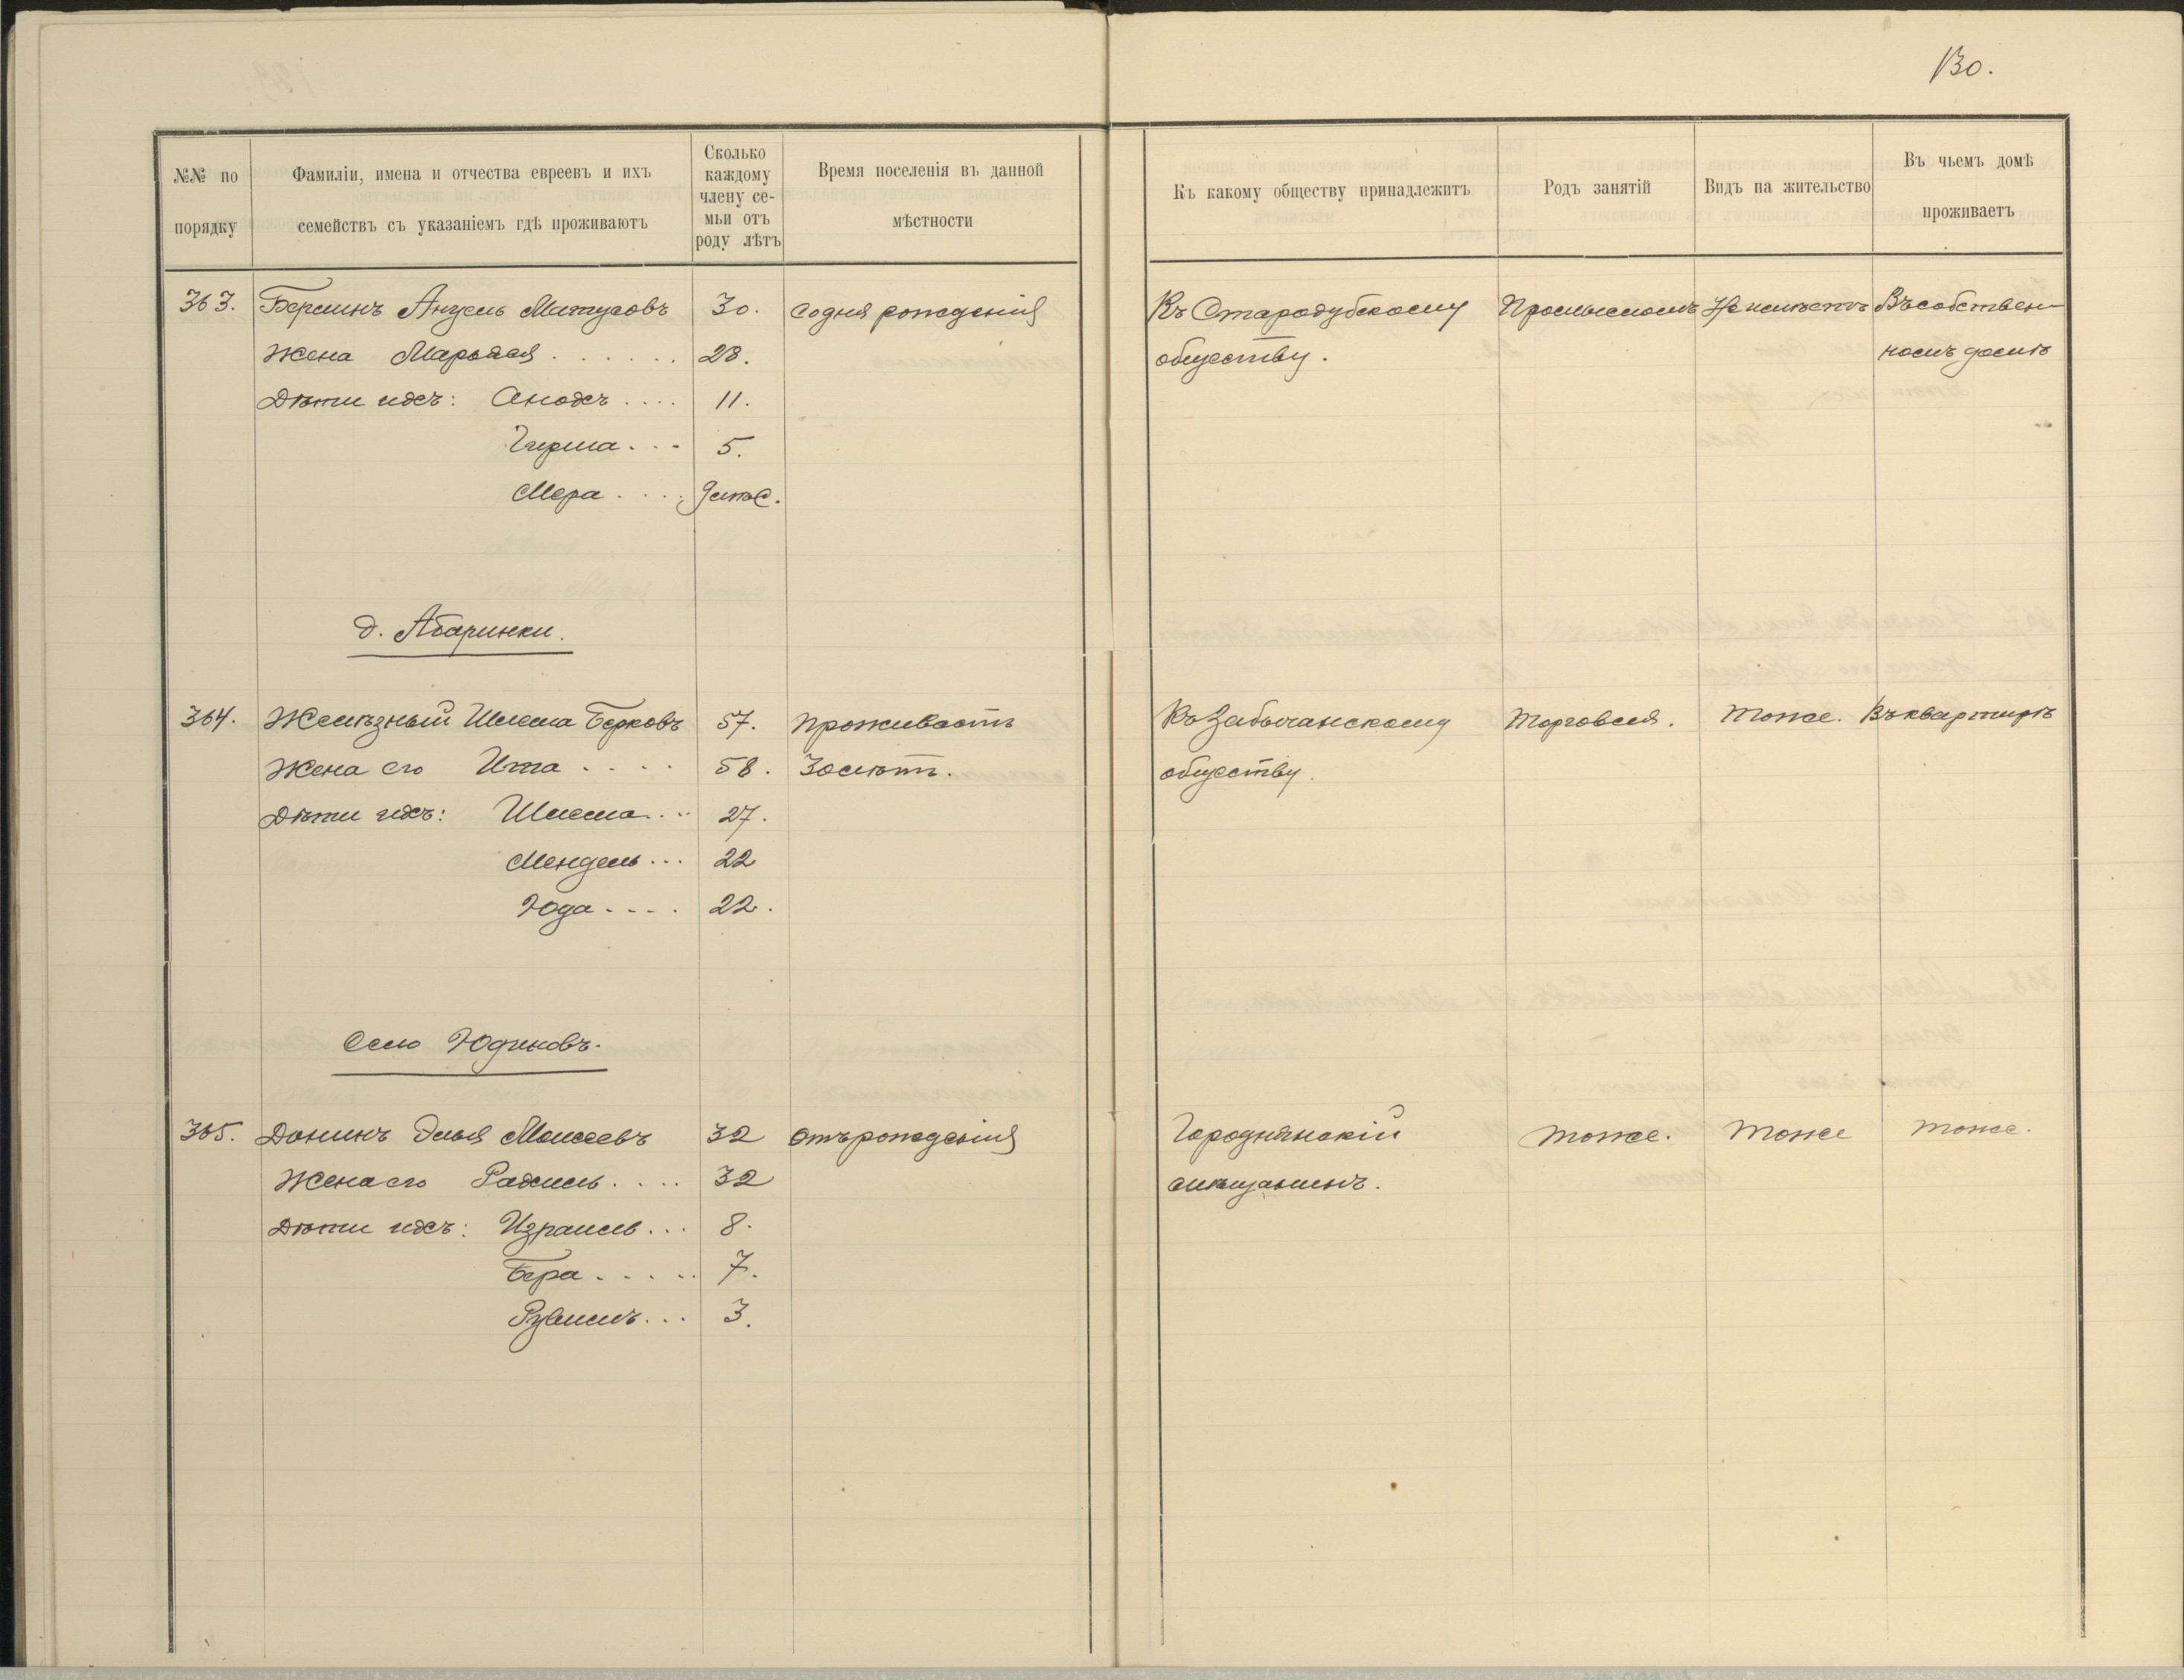 130.
№№ по порядку
Фамиліи, имена и отчества евреевъ и ихъ семействъ съ указаніемъ гдѣ проживаютъ
Сколько каждому члену семьи отъ роду лѣтъ
Время поселенія въ данной мѣстности
Къ какому обществу принадлежитъ
Родъ занятій
Видъ на жительство
Въ чьемъ домѣ проживаетъ
363. Берлинъ Анцель Матусовъ 30. со дня рожденія Къ Стародубскому Промысломъ Не имѣетъ Въ собствен-
Жена 28. обществу. номъ домѣ
Дѣти ихъ: 11.
5.
Мера .... 9 лѣтъ.
д. Абаринки.
364. Желѣзный Шлема Берковъ 57. проживаетъ Къ Забычанскому Торговля. тоже. Въ квартирѣ
Жена его Ита .... 58. 30 лѣтъ. обществу.
Дѣти ихъ: 27.
Мендель ... 22
Юда .... 22.
Село Юдиновъ.
365. Донинъ Элья Моисеевъ 32 отъ рожденія Городнянскій тоже. тоже тоже.
Жена его Рахиль .... 32 мѣщанинъ.
Дѣти ихъ: Израиль ... 8.
Бера ..... 7.
Рувимъ ... 3.